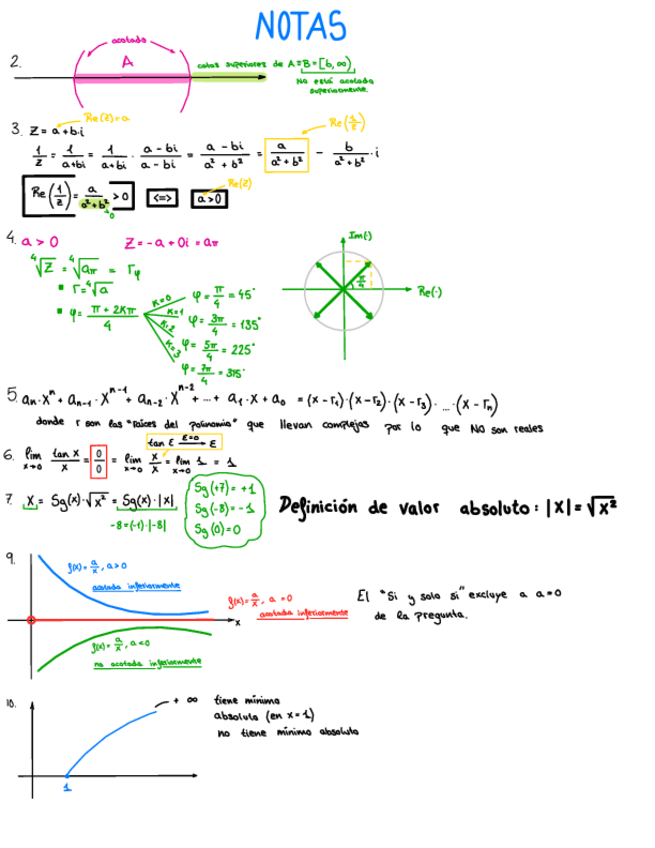 NOTAS
2.
acotado
A
cotas superiores de A≡B=[b, ∞)
No está acotada
superiormente.
3. Z = a+bi
Re(Z)=a
1/Z = 1/(a+bi) = 1/(a+bi) · (a-bi)/(a-bi) = (a-bi)/(a²+b²) = a/(a²+b²) - b/(a²+b²)·i
Re(1/Z)
Re(1/Z) = a/(a²+b²) > 0 <=> a>0
Re(Z)
4. a > 0 Z = -a + 0i = aπ
⁴√Z = ⁴√aπ = rφ
▪ r = ⁴√a
▪ φ = (π + 2Kπ)/4
K=0 φ = π/4 = 45°
K=1 φ = 3π/4 = 135°
K=2 φ = 5π/4 = 225°
K=3 φ = 7π/4 = 315°
Im(·)
π/4
Re(·)
5. aₙ·Xⁿ + aₙ₋₁·Xⁿ⁻¹ + aₙ₋₂·Xⁿ⁻² + ... + a₁·X + a₀ = (X-r₁)·(X-r₂)·(X-r₃)· ... ·(X-rₙ)
donde r son las "raíces del polinomio" que llevan complejos por lo que NO son reales
tan ε ε=0 ε
6. lim x→0 tan x/x = 0/0 = lim x→0 x/x = lim x→0 1 = 1
7. X = Sg(x)·√x² = Sg(x)·|x|
-8=(-1)·|-8|
Sg(+7) = +1
Sg(-8) = -1
Sg(0) = 0
Definición de valor absoluto: |X| = √x²
9.
f(x) = a/x, a>0
acotada inferiormente
f(x) = a/x, a=0
acotada inferiormente
x
f(x) = a/x, a<0
no acotada inferiormente
El "Si y solo si" excluye a a=0
de la pregunta.
10.
+ ∞
tiene mínimo
absoluto (en x=1)
no tiene mínimo absoluto
1